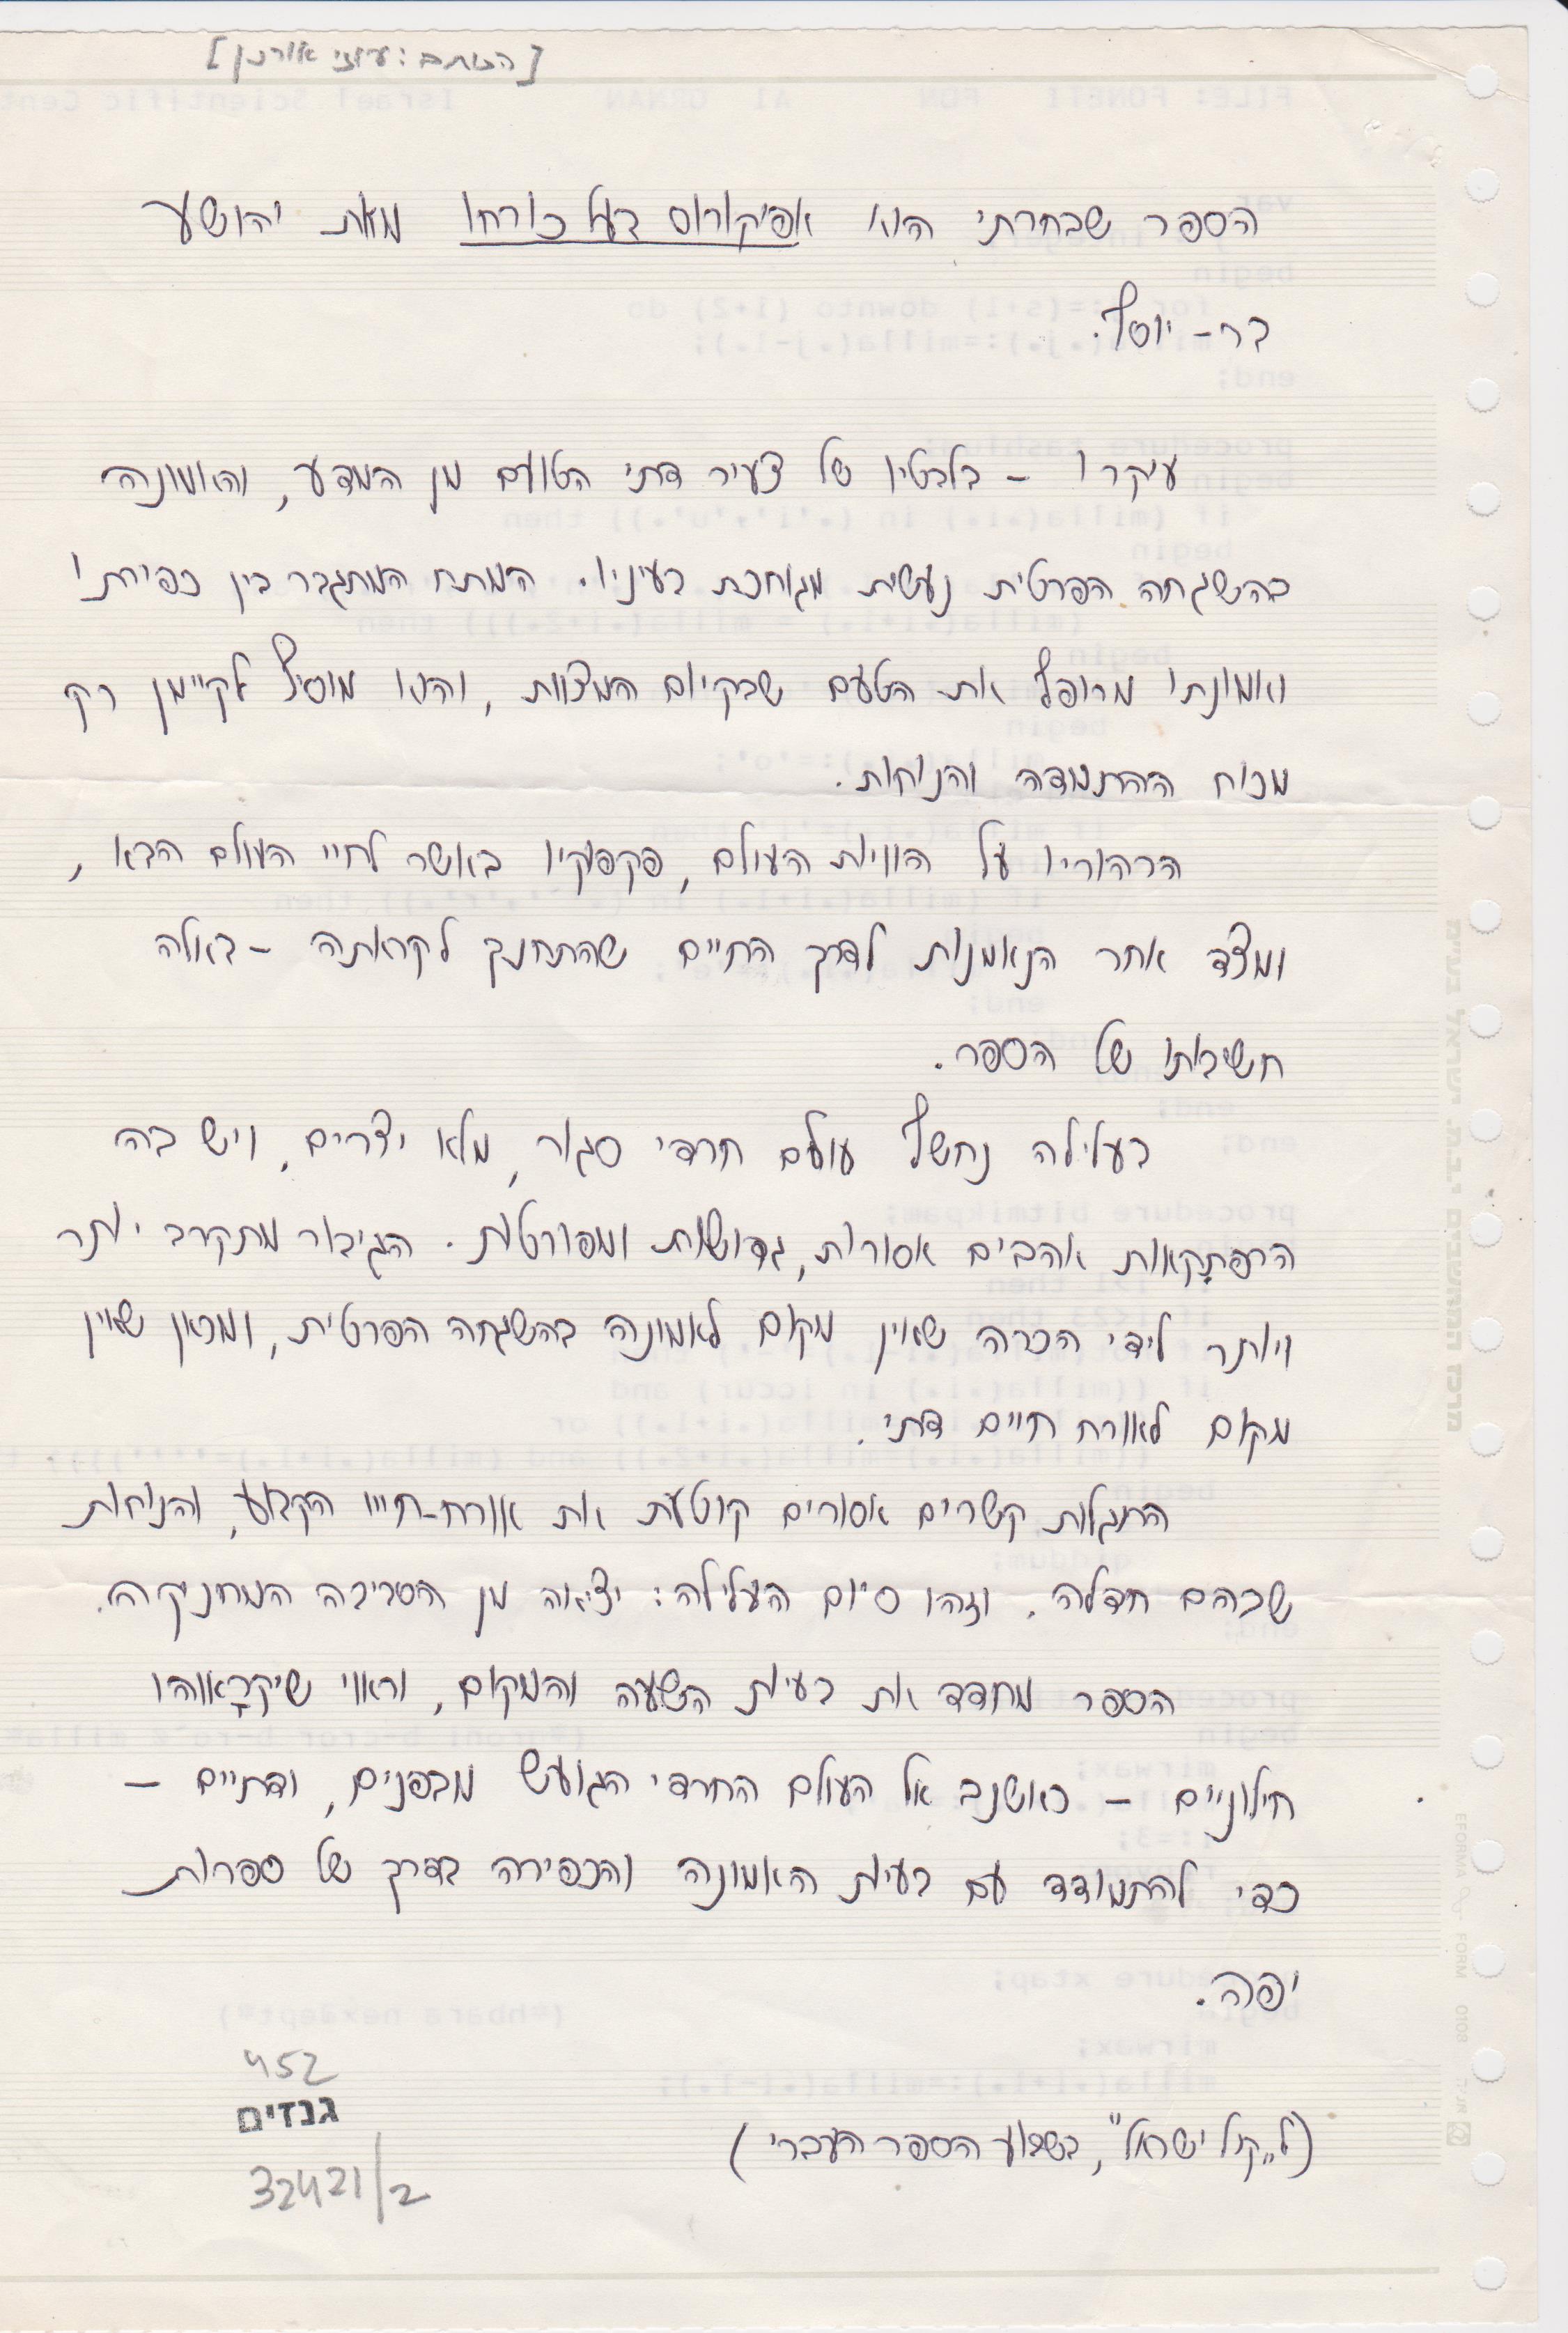 [הכותב: עוזי אורנן]
הספר שבחרתי הוא אפיקורוס בעל כורחו מאת יהושע
בר-יוסף.
עיקרו – בלבטיו של צעיר דתי הטועם מן המדע, והאמונה
בהשגחה הפרטית נעשית מגוחכת בעיניו. המתח המתגבר בין כפירתו
ואמונתו מרופף את הטעם שבקיום המצוות, והוא מוסיף לקיימן רק
מכוח ההתמדה והנוחות.
הרהוריו על הוויות העולם, פקפוקיו באשר לחיי העולם הבא,
ומצד אחר הנאמנות לדרך החיים שהתחנך לקראתה – באלה
חשיבותו של הספר.
בעלילה נחשף עולם חרדי סגור, מלא יצרים, ויש בה
הרפתקָאות אהבים אסורות, גדושות ומפורטות. הגיבור מתקרב יותר
ויותר לידי הכרה שאין מקום לאמונה בהשגחה הפרטית, ומכאן שאין
מקום לאורח חיים דתי.
התגלות קשרים אסורים קוטעת את אורח-חייו הקבוע, והנוחות
שבהם חדלה. וזהו סיום העלילה: יציאה מן הסביבה המחניקה.
הספר מחדד את בעיות השעה והמקום, וראוי שיקרָאוהו
חילוניים – כאשנב אל העולם החרדי הגועש מבפנים, ודתיים –
כדי להתמודד עם בעיות האמונה והכפירה בדרך של ספרות
יפה.
(ל„קול ישראל", בשבוע הספר העברי)
452
גנזים
32421/2